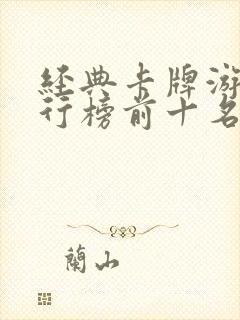 經典卡牌游
行榜前十名
蘭山